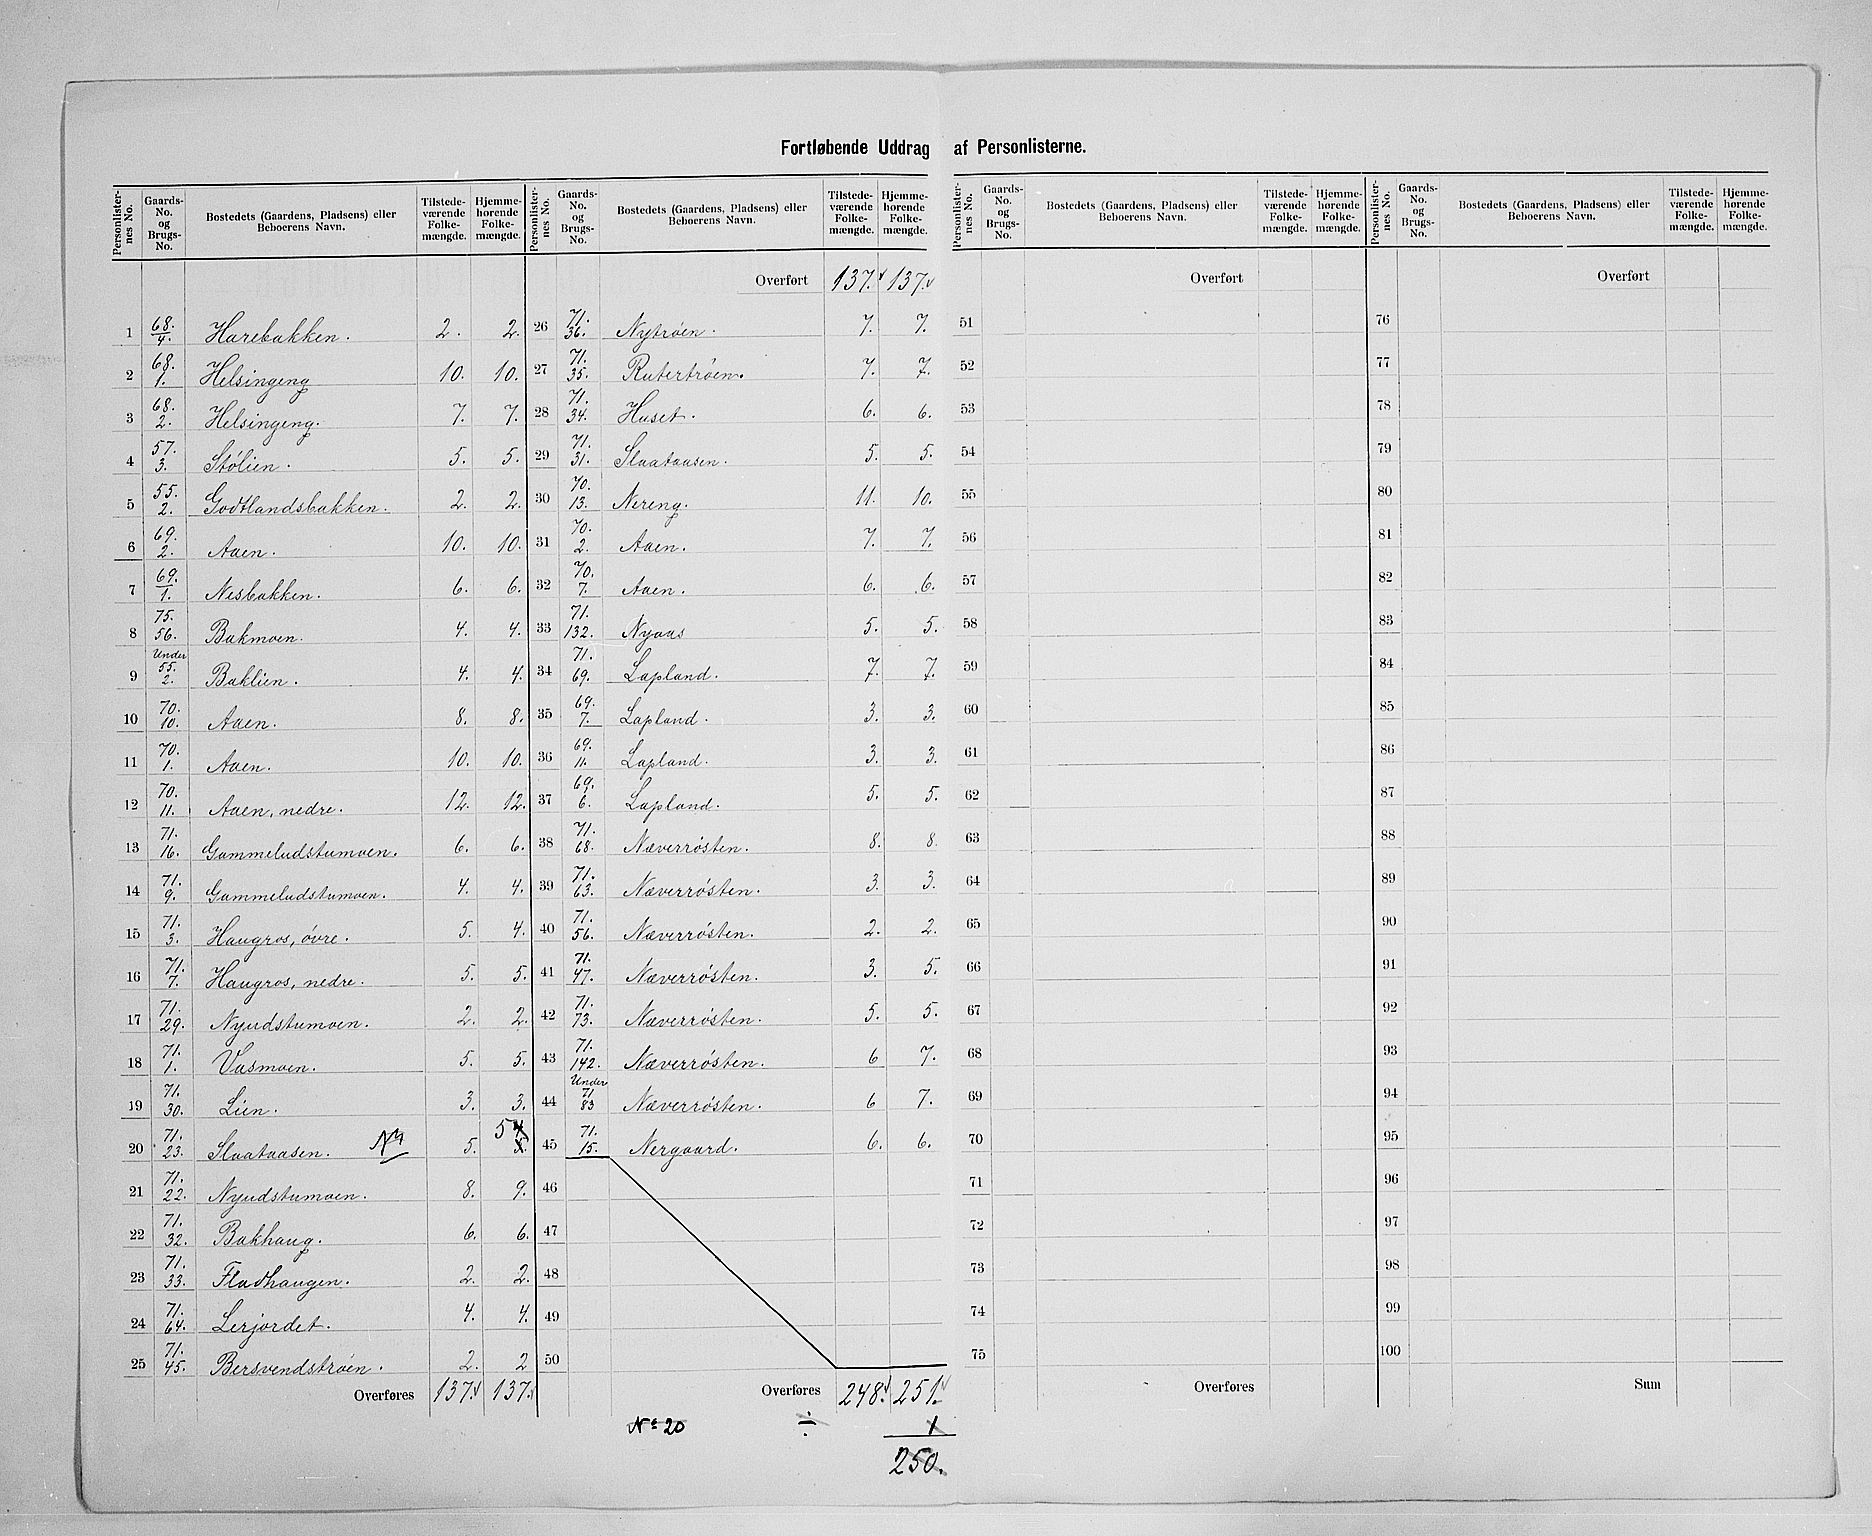 Fortløbende Uddrag af Personlisterne.
Personlister-nes No. | Gaards-No. og Brugs-No. | Bostedets (Gaardens, Pladsens) eller Beboerens Navn. | Tilstede-værende Folke-mængde. | Hjemme-hørende Folke-mængde. | Personlister-nes No. | Gaards-No. og Brugs-No. | Bostedets (Gaardens, Pladsens) eller Beboerens Navn. | Tilstede-værende Folke-mængde. | Hjemme-hørende Folke-mængde. | Personlister-nes No. | Gaards-No. og Brugs-No. | Bostedets (Gaardens, Pladsens) eller Beboerens Navn. | Tilstede-værende Folke-mængde. | Hjemme-hørende Folke-mængde. | Personlister-nes No. | Gaards-No. og Brugs-No. | Bostedets (Gaardens, Pladsens) eller Beboerens Navn. | Tilstede-værende Folke-mængde. | Hjemme-hørende Folke-mængde.
Overført 137. 137. Overført Overført
1 68./4. Harebakken. 2. 2. 26 71./36. Nytrøen. 7. 7. 51 76
2 68./1. Helsingeng 10. 10. 27 71./35. Rutertrøen. 7. 7. 52 77
3 68./2. Helsingeng. 7. 7. 28 71./34. Huset. 6. 6. 53 78
4 57./3. Stølien. 5. 5. 29 71./31. Slaataasen. 5. 5. 54 79
5 55./2. Godtlandsbakken. 2. 2. 30 70./13. Nereng. 11. 10. 55 80
6 69./2. Aaen. 10. 10. 31 70./2. Aaen. 7. 7. 56 81
7 69./1. Nesbakken. 6. 6. 32 70./7. Aaen. 6. 6. 57 82
8 75./56. Bakmoen. 4. 4. 33 71./132. Nyaas 5. 5. 58 83
9 Under 55./2. Baklien. 4. 4. 34 71./69. Lapland. 7. 7. 59 84
10 70./10. Aaen. 8. 8. 35 69./7. Lapland. 3. 3. 60 85
11 70./1. Aaen. 10. 10. 36 69./11. Lapland. 3. 3. 61 86
12 70./11. Aaen, nedre. 12. 12. 37 69./6. Lapland. 5. 5. 62 87
13 71./16. Gammeludstumoen. 6. 6. 38 71./68. Næverrøsten. 8. 8. 63 88
14 71./9. Gammeludstumoen. 4. 4. 39 71./63. Næverrøsten. 3. 3. 64 89
15 71./3. Haugros, øvre. 5. 4. 40 71./56. Næverrøsten. 2. 2. 65 90
16 71./7. Haugros, nedre. 5. 5. 41 71./47. Næverrøsten. 3. 5. 66 91
17 71./29. Nyudstumoen. 2. 2. 42 71./73. Næverrøsten. 5. 5. 67 92
18 71./1. Vasmoen. 5. 5. 43 71./142. Næverrøsten. 6 7. 68 93
19 71./30. Lien. 3. 3. 44 Under 71/83 Næverrøsten. 6 7. 69 94
20 71./23. Slaataasen. 5. 5 4 5. 45 71./15. Nergaard. 6. 6. 70 95
21 71./22. Nyudstumoen. 8. 9. 46 71 96
22 71./32. Bakhaug. 6. 6. 47 72 97
23 71./33. Fladhaugen. 2. 2. 48 73 98
24 71./64. Lerjordet. 4. 4. 49 74 99
25 71./45. Bersvendstrøen. 2. 2 50 75 100
Overføres 137. 137. Overføres 248. 251. Overføres Sum
No 20 ÷ 1
250.